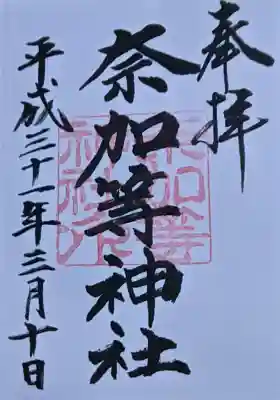 奉拝
奈加等神社
平成三十一年三月十日